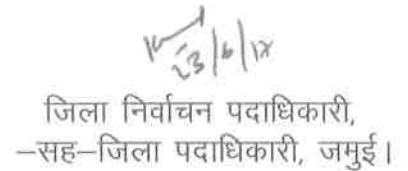 23/6/18
जिला निर्वाचन पदाधिकारी,
–सह–जिला पदाधिकारी, जमुई।